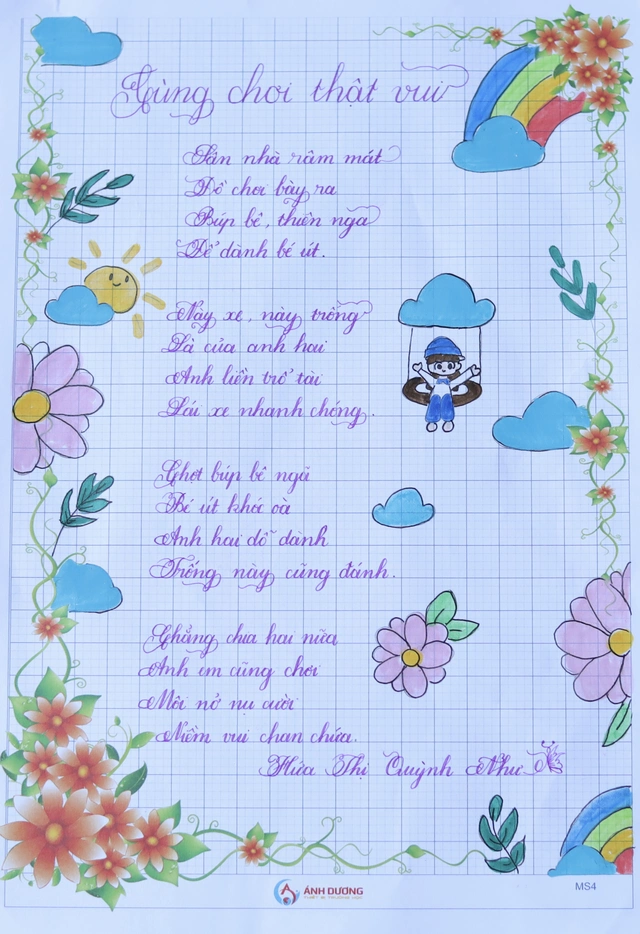 Cùng chơi thật vui
Sân nhà râm mát
Đồ chơi bày ra
Búp bê, thiên nga
Để dành bé út.
Này xe, này trống
Là của anh hai
Anh liền trổ tài
Lái xe nhanh chóng.
Chợt búp bê ngã
Bé út khóc oà
Anh hai dỗ dành
Trống này cũng đánh.
Chẳng chia hai nữa
Anh em cùng chơi
Môi nở nụ cười
Niềm vui chan chứa.
Hứa Thị Quỳnh Như
ÁNH DƯƠNG
MS4